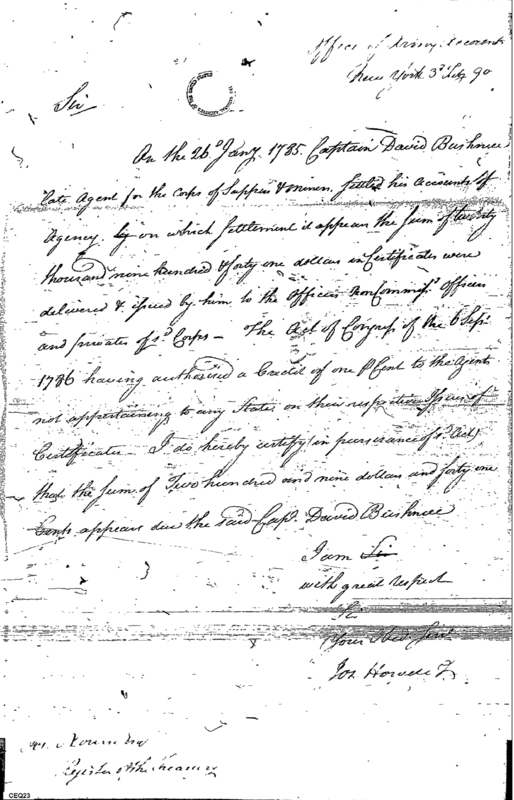 Office of Army Accounts
New York 3d Feby 90
Sir
On the 26th Jany. 1785. Captain David Bushnell
late Agent for the Corps of Sappers & miners, settled his Accounts of
Agency by on which settlement it appears the sum of twenty
thousand nine hundred & forty one dollars in Certificates were
delivered & issued by him to the Officers NonCommissd. Officers
and privates of sd. Corps — The Act of Congress of the 6 Sepr.
1786 having authorised a Credit of one P Cent to the Agents
not appertaining to any State, on their respective Issues of
Certificates — I do hereby certify (in pursuance of sd. Act)
that the sum of Two hundred and nine dollars and forty one
Cents appears due the said Capt. David Bushnell
I am Sir
with great respect
Sir
Your Obed. Serv
Jos. Howell Jr.
Nourse Esq
Register of the Treasury
CEQ23